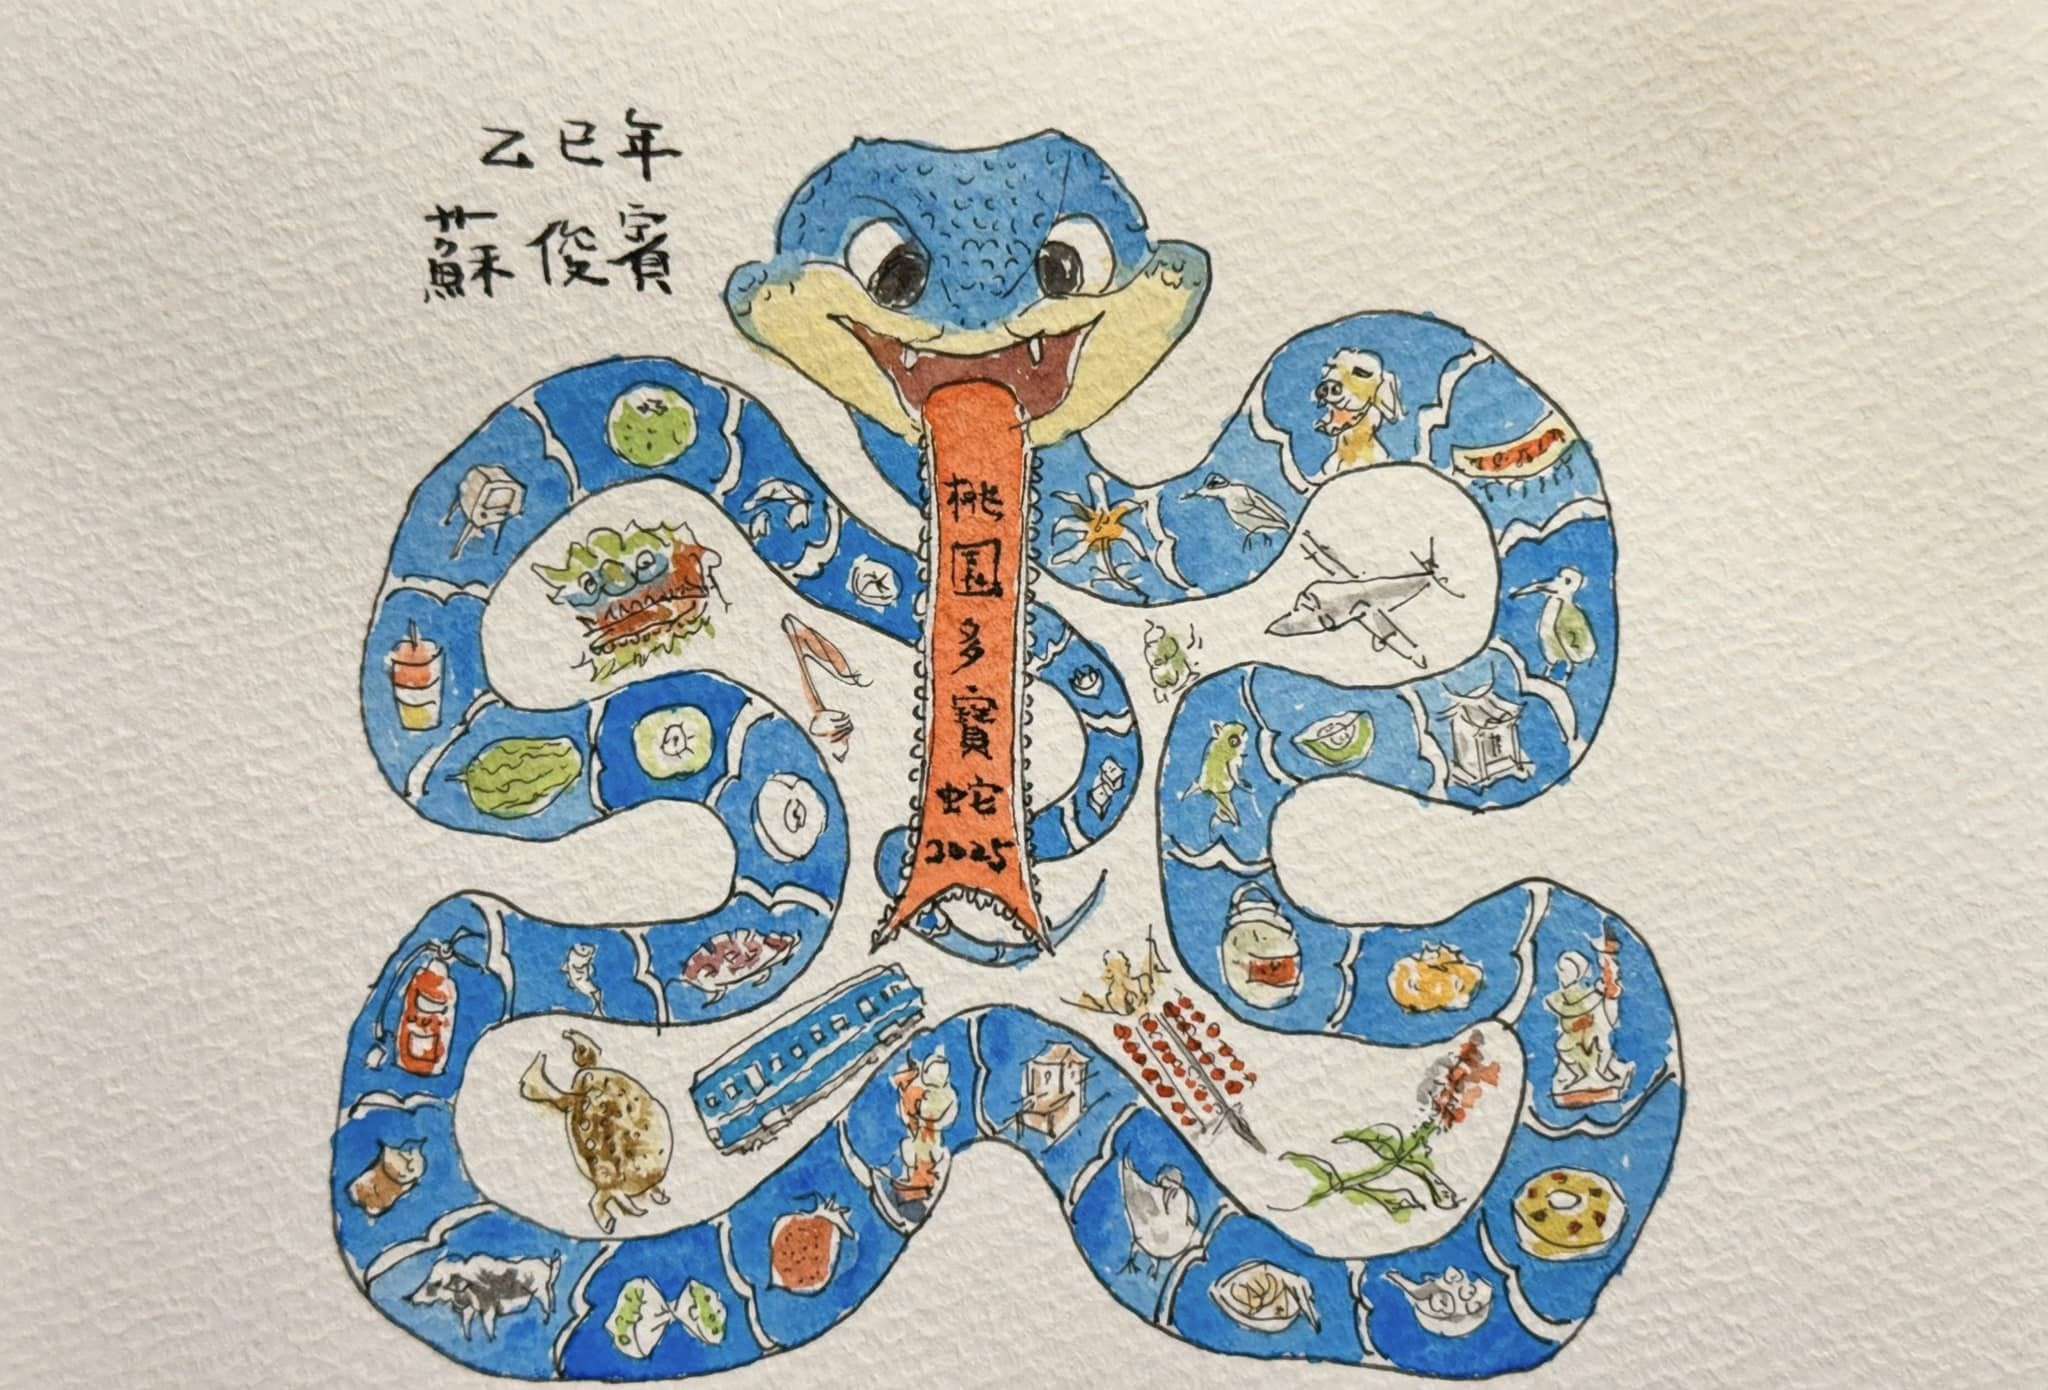 乙巳年
蘇俊賓
桃園多寶蛇
2025